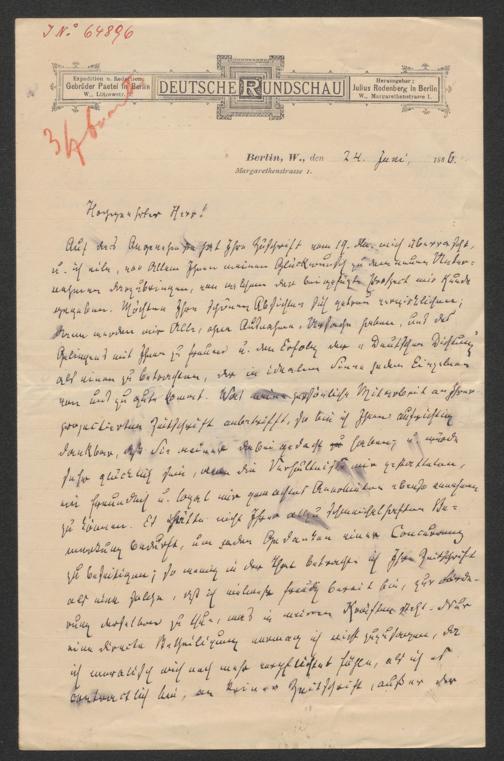 J. N.° 64896
Expedition u. Redaction:
Gebrüder Paetel in Berlin
W., Lützowstr.
DEUTSCHE RUNDSCHAU
Herausgeber:
Julius Rodenberg in Berlin
W., Margarethenstrasse 1.
Berlin, W., den 24. Juni, 1886.
Margarethenstrasse 1.
Hochgeehrter Herr!
Auf das Angenehmste hat Ihre Zuschrift vom 19. mich überrascht,
u. ich eile, vor Allem Ihnen meinen Glückwunsch zu dem neuen Unter-
nehmen darzubringen, von welchem der beigefügte Prospect mir Kunde
gegeben. Möchten Ihre schönen Absichten sich getreu verwirklichen;
dann werden wir Alle, ohne Ausnahme, Ursache haben, uns des
Gelingens mit Ihnen zu freuen u. den Erfolg der "Deutschen Dichtung"
als einen zu betrachten, der in idealem Sinne jedem Einzelnen
von uns zu gute kommt. Was meine persönliche Mitarbeit an Ihrer
projectierten Zeitschrift anbetrifft, so bin ich Ihnen aufrichtig
dankbar, daß Sie meiner dabei gedacht haben, u. würde
sehr glücklich sein, wenn die Verhältnisse mir gestatteten,
ein freundlich u. loyal mir gemachtes Anerbieten ebenso annehmen
zu können. Es hätte nicht Ihrer allzu schmeichelhaften Be-
merkung bedurft, um jeden Gedanken einer Concurrenz
zu beseitigen; so wenig in der That betrachte ich Ihre Zeitschrift
als eine solche, daß ich vielmehr freudig bereit bin, zur Förde-
rung derselben zu thun, was in meinen Kräften steht. Nur
eine directe Betheiligung vermag ich nicht zuzusagen, da
ich moralisch mich noch mehr verpflichtet fühle, als ich es
contractlich bin, an keiner Zeitschrift, außer der